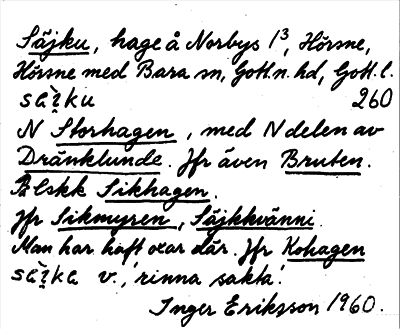 Säjku, hage å Norbys 1³, Hörsne,
Hörsne med Bara sn, Gotl. n. hd, Gotl. l.
260
N Storhagen, med N delen av
Dränklunde. Jfr även Bruten.
Blskk Sikhagen.
Jfr Sikmyren, Säjkkvänni.
Man har haft oxar där. Jfr Kohagen
v., 'rinna sakta'.
Inger Eriksson 1960.